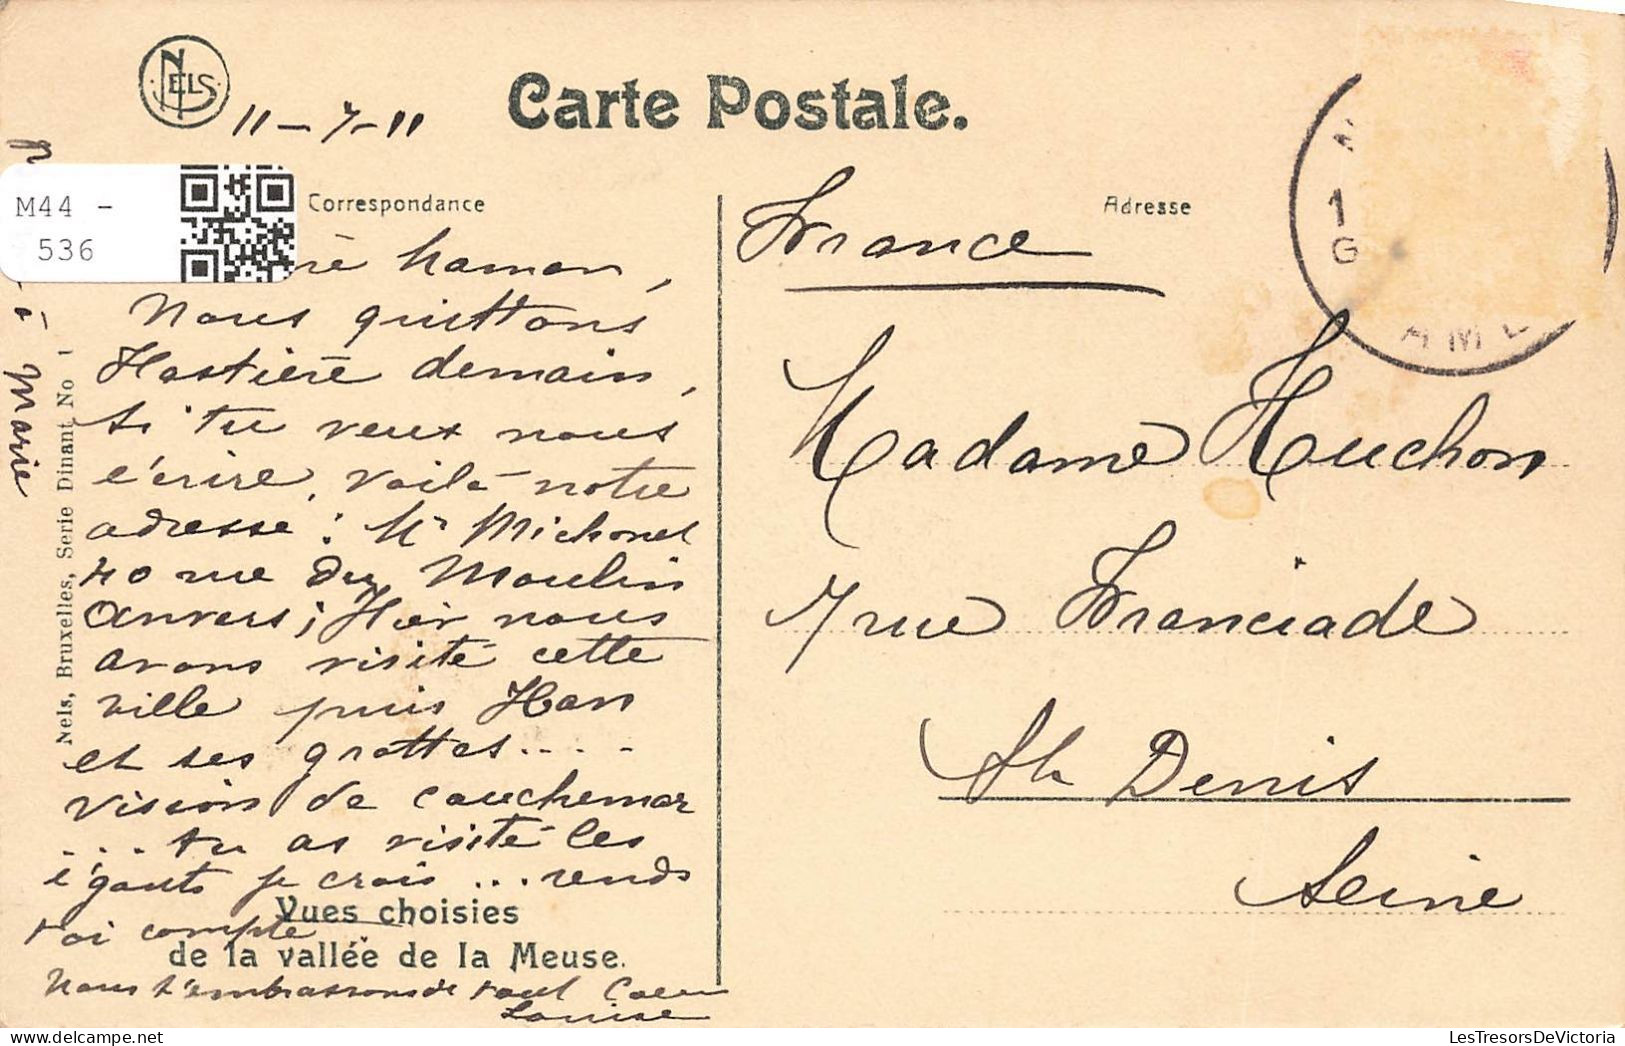 NELS
11-7-11
Carte Postale.
M44 -
536
Correspondance
Adresse
Maman,
Nous quittons
Hastière demain,
si tu veux nous
écrire, voilà notre
adresse : Mr Michonet
40 rue du Moulin
Anvers; Hier nous
avons visité cette
ville puis Han
et ses grottes....
vision de cauchemar
... tu as visité les
égouts je crois ... rends
toi compte
Nous t'embrassons de tout coeur
Louise
Marie
Nels, Bruxelles, Serie Dinant No 1
Vues choisies
de la vallée de la Meuse.
France
Madame Huchon
7 rue Franciade
St Denis
Seine
LesTresorsDeVictoria